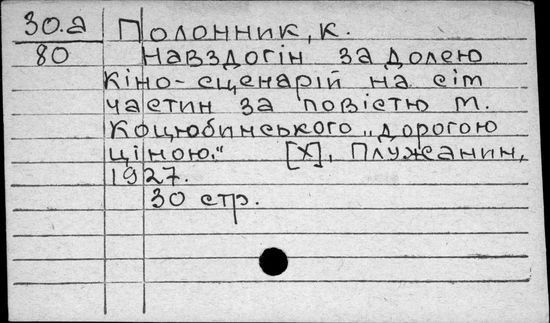 30.а Полонник, К.
80 Навздогін за долею
кіно-сценарій на сім
частин за повістю М.
Коцюбинського „Дорогою
ціною.“ [Х], Плужанин,
1927.
30 стр.